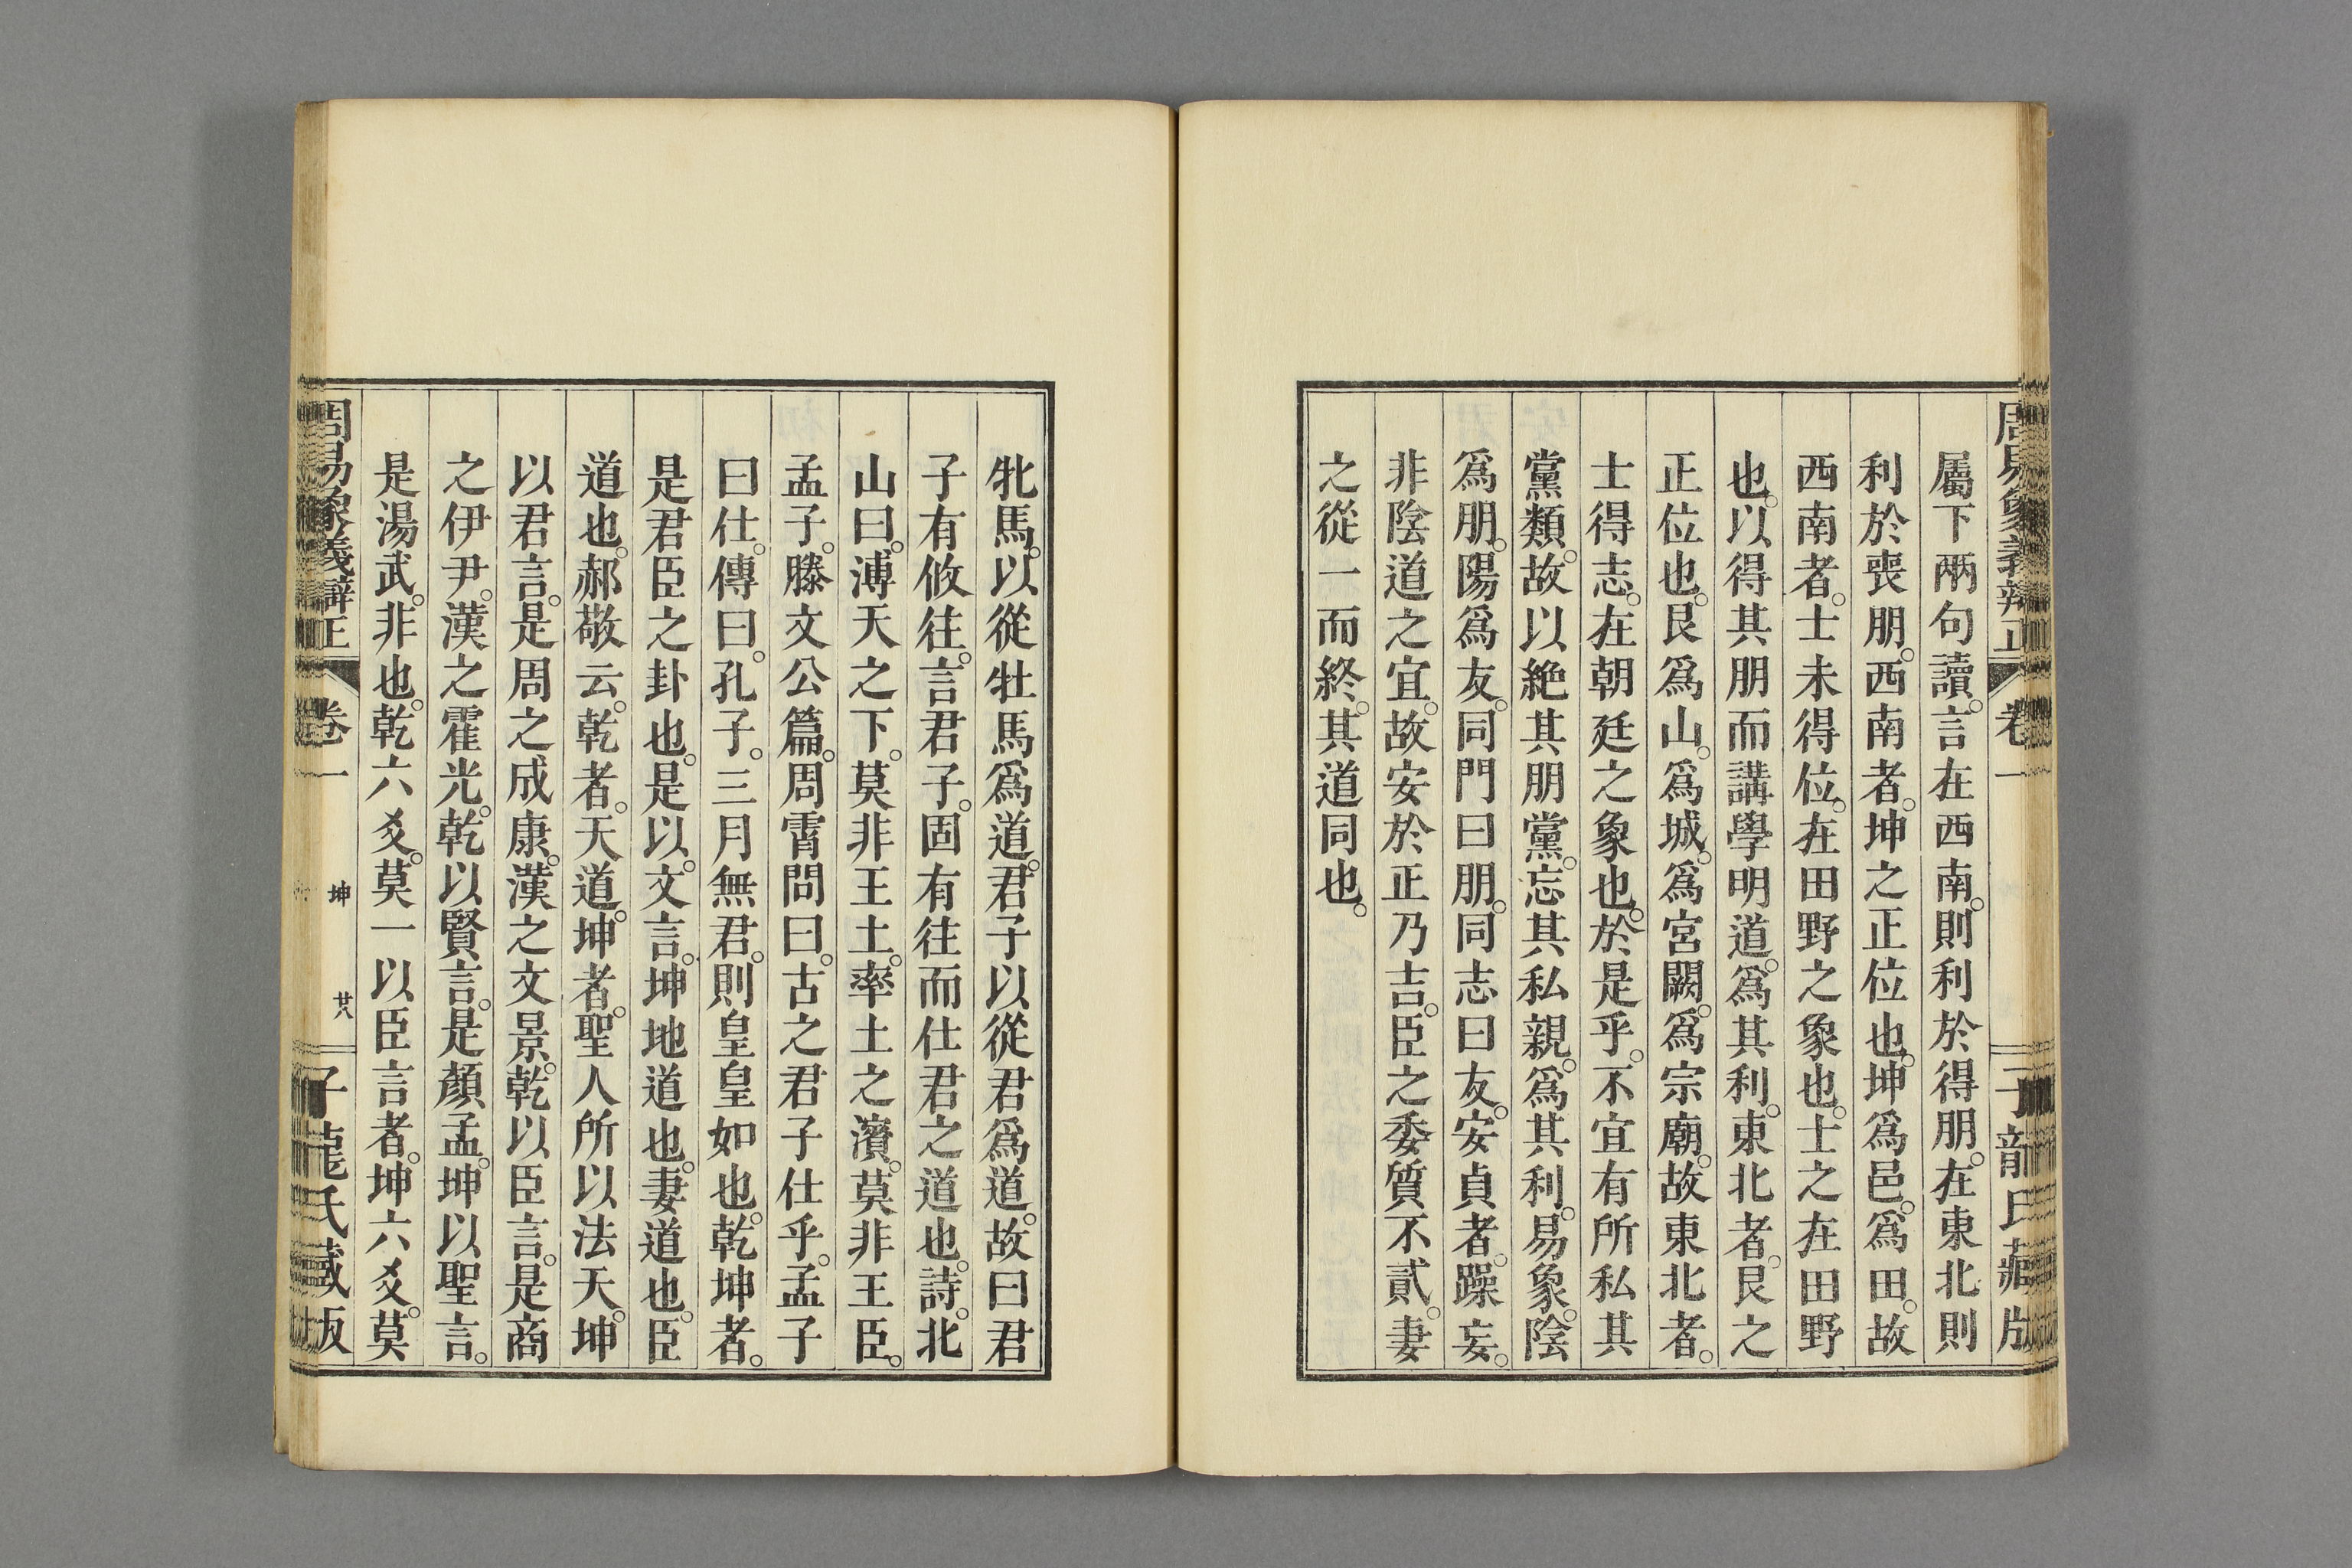 周易象義辨正　卷一　子龍氏藏版
屬下兩句讀。言在西南。則利於得朋。在東北則
利於喪朋。西南者。坤之正位也。坤爲邑。爲田。故
西南者。士未得位。在田野之象也。士之在田野
也。以得其朋而講學明道。爲其利。東北者。艮之
正位也。艮爲山。爲城。爲宮闕。爲宗廟。故東北者。
士得志。在朝廷之象也。於是乎。不宜有所私其
黨類。故以絶其朋黨。忘其私親。爲其利。易象。陰
爲朋。陽爲友。同門曰朋。同志曰友。安貞者。躁妄。
非陰道之宜。故安於正乃吉。臣之委質不貳。妻
之從一而終。其道同也。
牝馬。以從牡馬爲道。君子以從君爲道。故曰君
子有攸往。言君子。固有往而仕君之道也。詩。北
山曰。溥天之下。莫非王土。率土之濱。莫非王臣。
孟子。滕文公篇。周霄問曰。古之君子仕乎。孟子
曰仕。傳曰。孔子。三月無君。則皇皇如也。乾坤者。
是君臣之卦也。是以。文言。坤地道也。妻道也。臣
道也。郝敬云。乾者。天道。坤者。聖人所以法天。坤
以君言。是周之成康。漢之文景。乾以臣言。是商
之伊尹。漢之霍光。乾以賢言。是顏孟。坤以聖言。
是湯武。非也。乾六爻。莫一以臣言者。坤六爻。莫
周易象義辯正　卷一　坤　廿八　子龍氏藏版